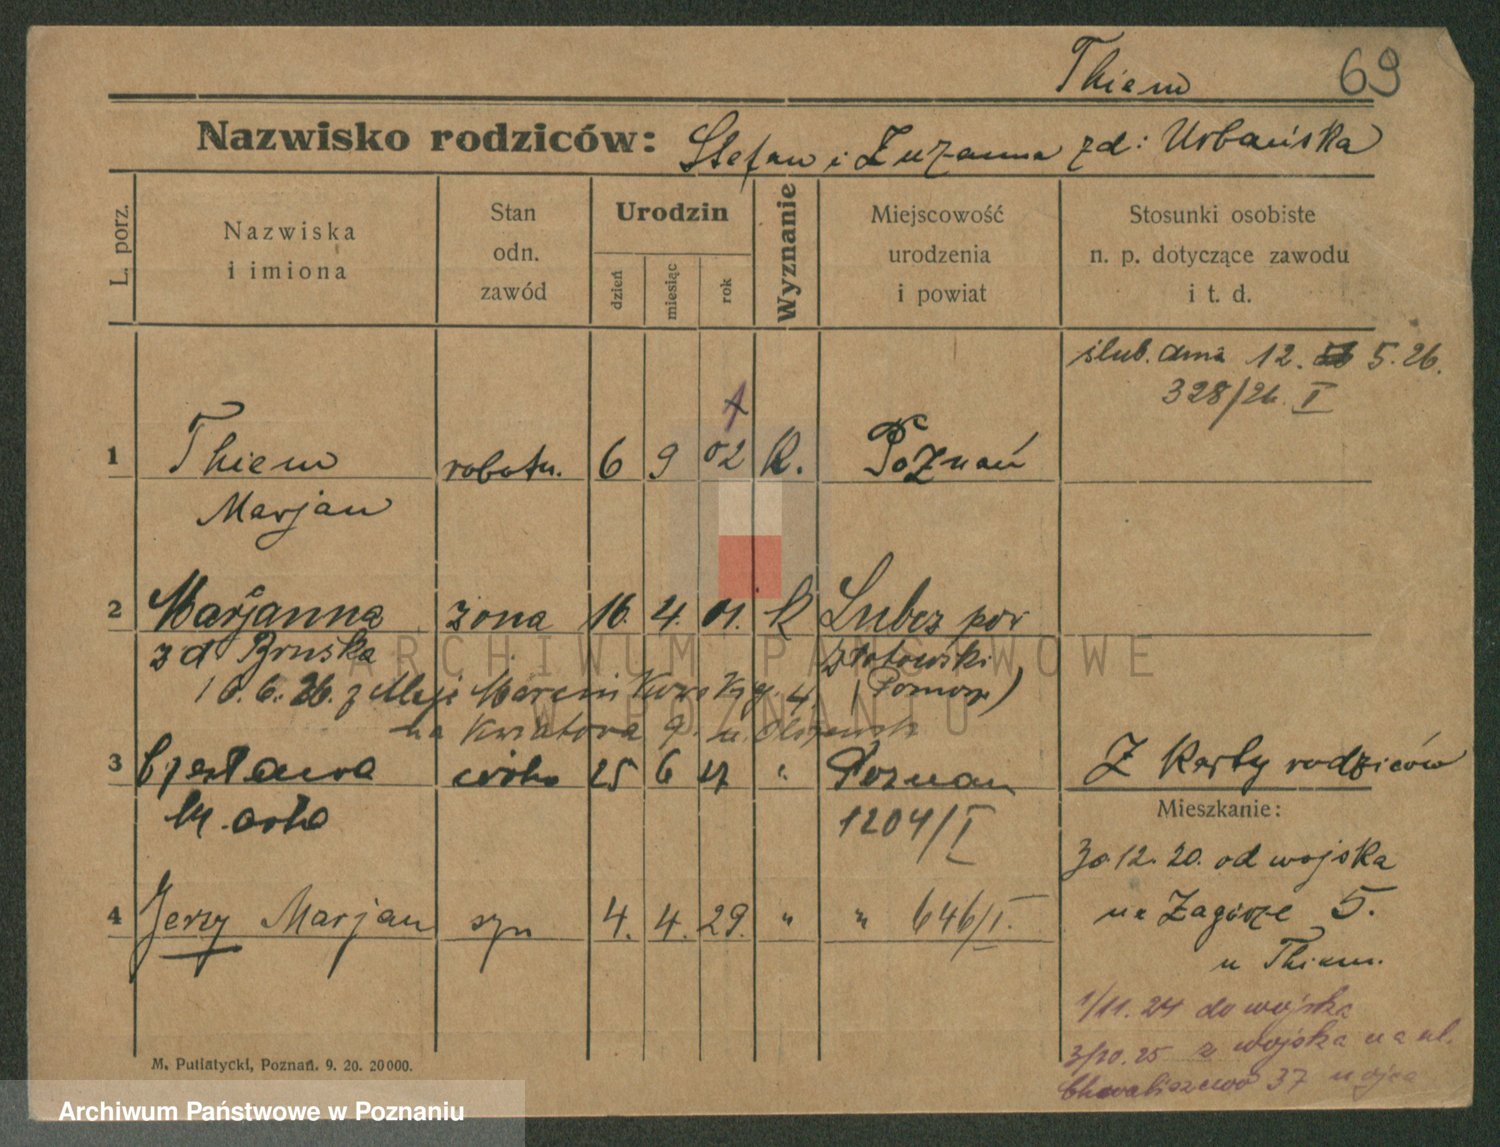 Thiem 69
Nazwisko rodziców: Stefan i Zuzanna zd: Urbańska
L. porz.
Nazwiska
i imiona
Stan
odn.
zawód
Urodzin
dzień
miesiąc
rok
Wyznanie
Miejscowość
urodzenia
i powiat
Stosunki osobiste
n. p. dotyczące zawodu
i t. d.
ślub. dnia 12. 5. 26.
328/26. I
1 Thiem robotn. 6 9 02 K. Poznań
Marjan
2 Marjanna żona 16. 4. 01. K Lubcz pow
zd Bruska złotowski
10.6.26. z Marcinkowskg. 4 (Pomorze)
na Kwiatowa 9. u
3 Czesława córka 25 6 27 " Poznań Z Karty rodziców
Marta 1204/I
Mieszkanie:
30.12.20. od wojska
na Zagórze 5.
u Thiem.
4 Jerzy Marjan syn 4. 4. 29. " " 646/I.
1/11. 24 do wojska
3/10. 25 z wojska na ul.
Chwaliszewo 37 u ojca
M. Putiatycki, Poznań. 9. 20. 20000.
ARCHIWUM PAŃSTWOWE
W POZNANIU
Archiwum Państwowe w Poznaniu